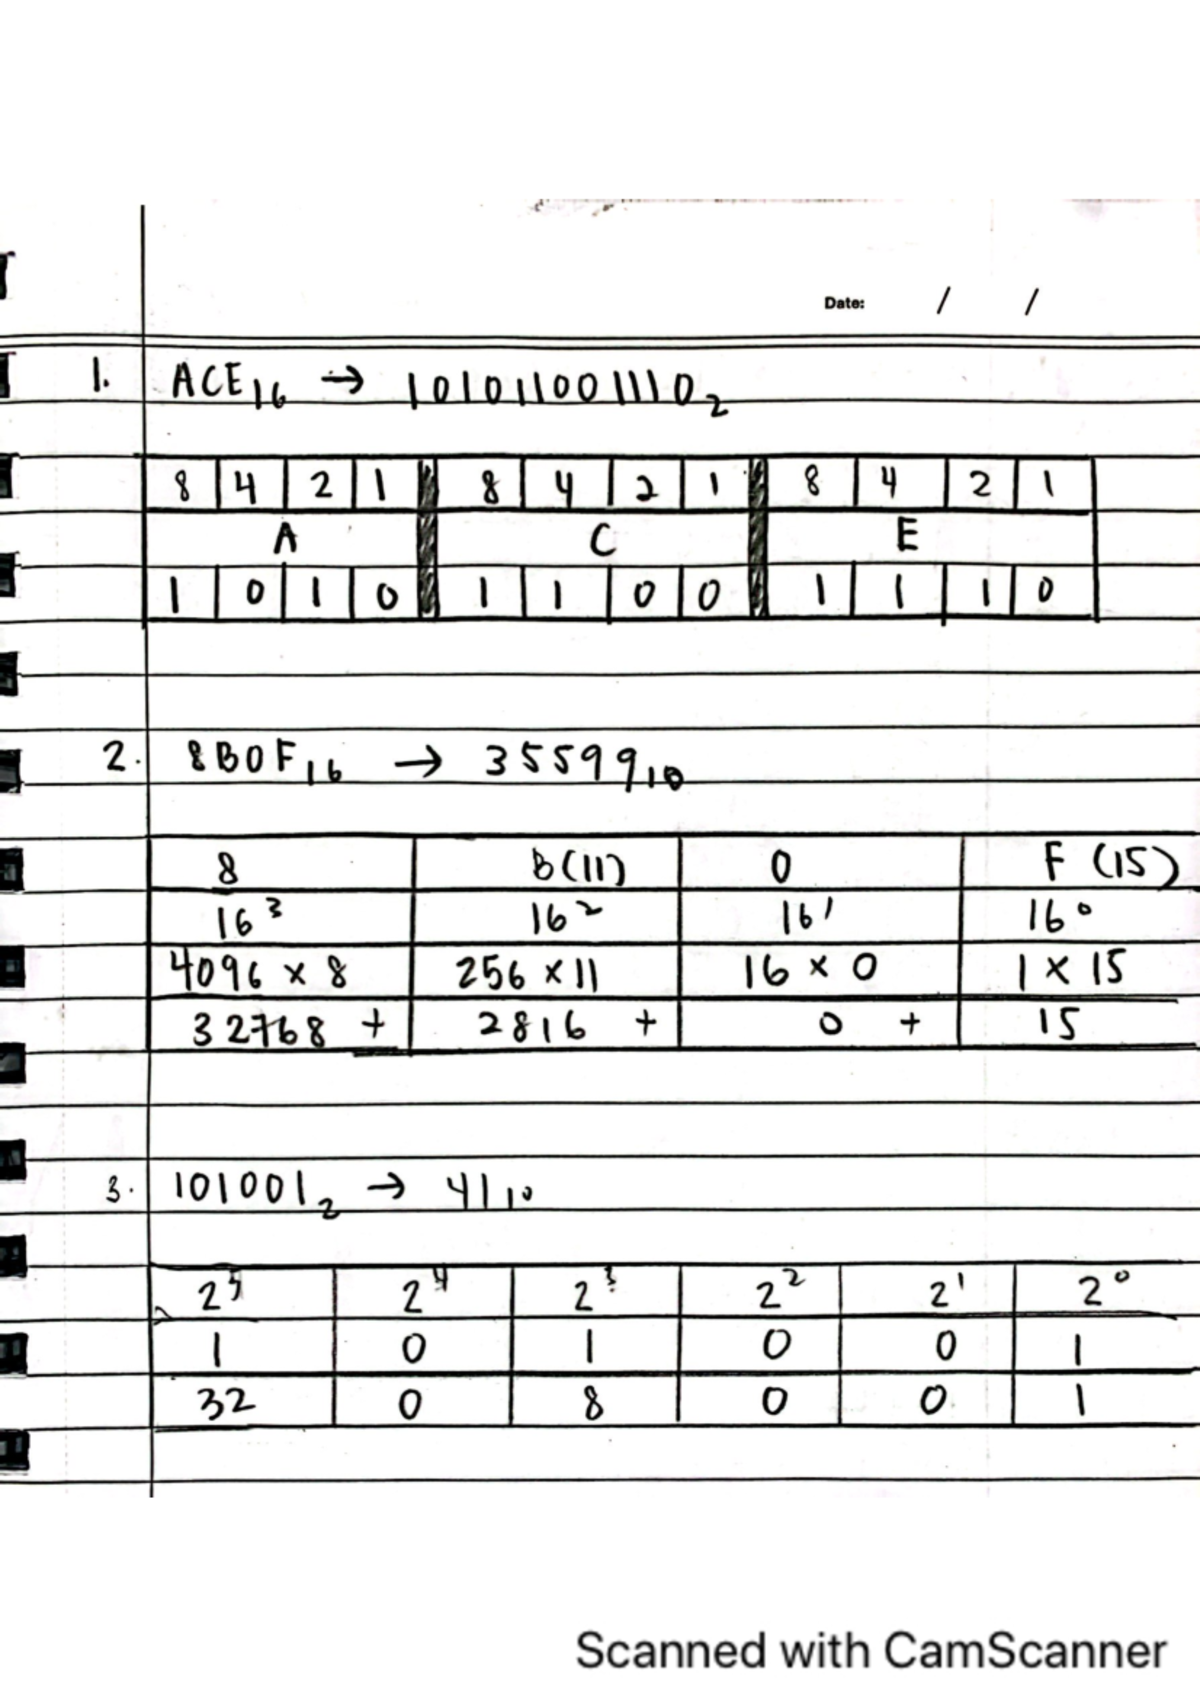 Date: / /
1. ACE₁₆ → 101011001110₂
8 4 2 1 8 4 2 1 8 4 2 1
A C E
1 0 1 0 1 1 0 0 1 1 1 0
2. 8B0F₁₆ → 35599₁₀
8 B(11) 0 F (15)
16³ 16² 16¹ 16⁰
4096 × 8 256 × 11 16 × 0 1 × 15
32768 + 2816 + 0 + 15
3. 101001₂ → 41₁₀
2⁵ 2⁴ 2³ 2² 2¹ 2⁰
1 0 1 0 0 1
32 0 8 0 0 1
Scanned with CamScanner